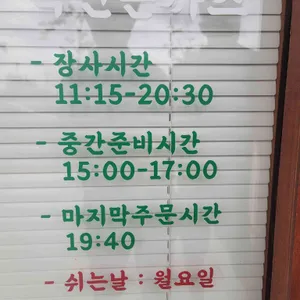 - 장사시간
11:15-20:30
- 중간준비시간
15:00-17:00
- 마지막주문시간
19:40
- 쉬는날 : 월요일